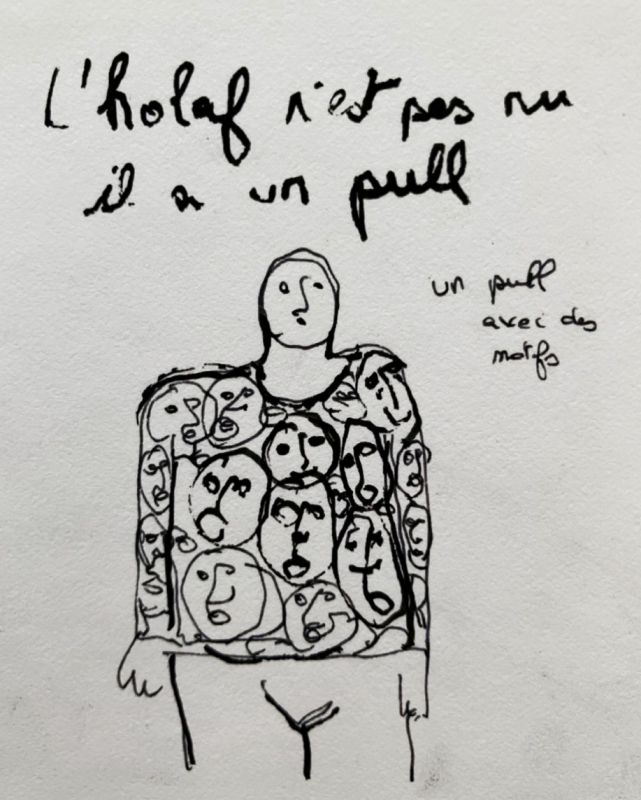 L'holaf n'est pas nu
il a un pull
un pull
avec des
motifs